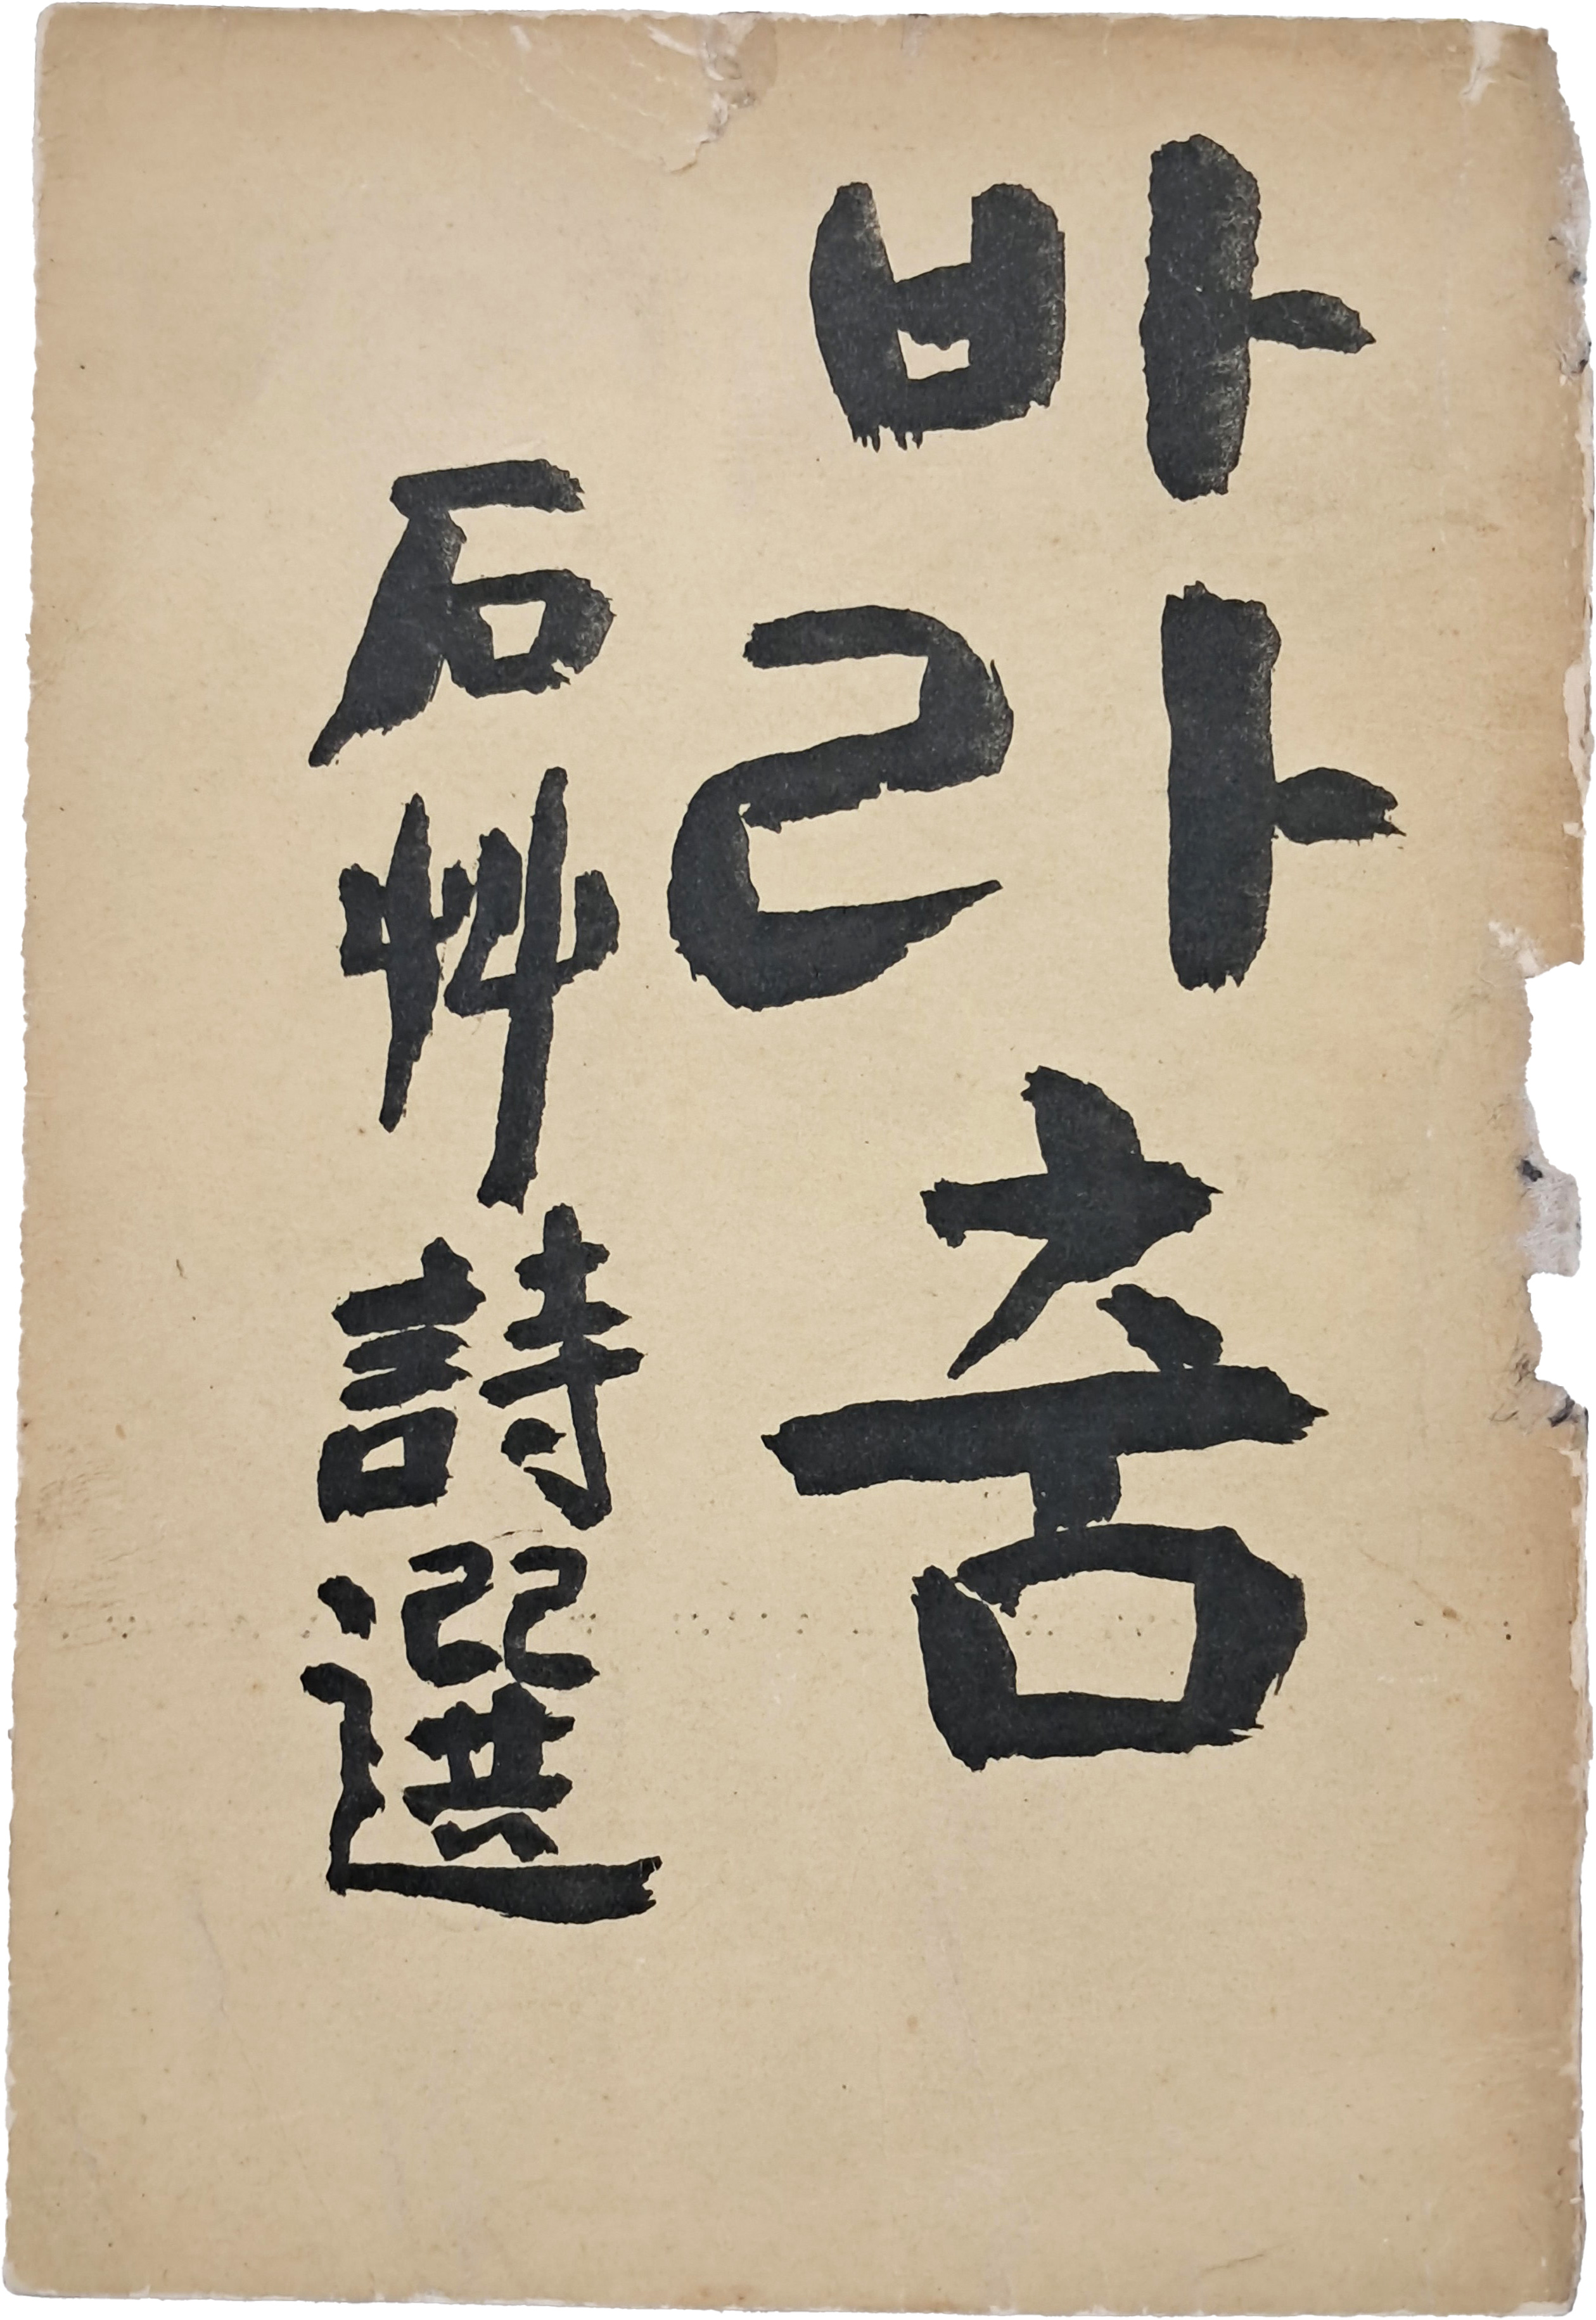 바라춤
石艸詩選